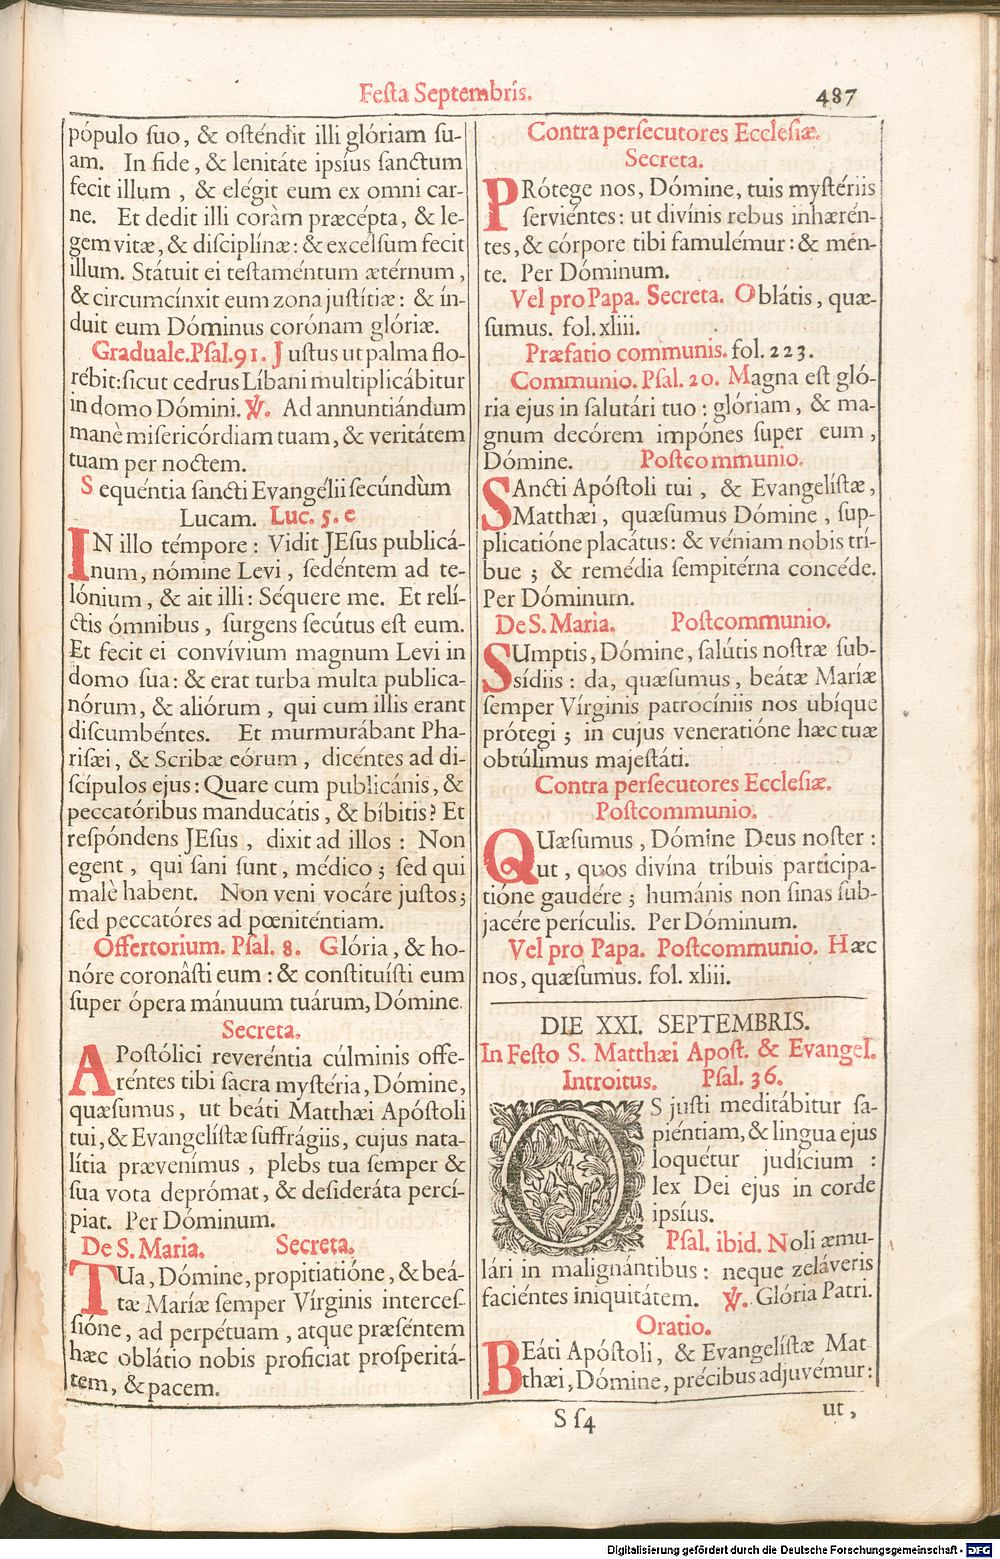 Festa Septembris.
487
pópulo ſuo, & oſténdit illi glóriam ſu-
am. In fide, & lenitáte ipsíus ſanctum
fecit illum, & elégit eum ex omni car-
ne. Et dedit illi coràm præcépta, & le-
gem vitæ, & diſciplínæ: & excélſum fecit
illum. Státuit ei teſtaméntum ætérnum,
& circumcínxit eum zona juſtítiæ: & ín-
duit eum Dóminus corónam glóriæ.
Graduale. Pſal. 91. Juſtus ut palma flo-
rébit: ſicut cedrus Líbani multiplicábitur
in domo Dómini. ℣. Ad annuntiándum
manè miſericórdiam tuam, & veritátem
tuam per noctem.
Sequéntia ſancti Evangélii ſecúndùm
Lucam. Luc. 5. e
IN illo témpore: Vidit JEſus publicá-
num, nómine Levi, ſedéntem ad te-
lónium, & ait illi: Séquere me. Et relí-
ctis ómnibus, ſurgens ſecútus eſt eum.
Et fecit ei convívium magnum Levi in
domo ſua: & erat turba multa publica-
nórum, & aliórum, qui cum illis erant
diſcumbéntes. Et murmurábant Pha-
riſæi, & Scribæ eórum, dicéntes ad di-
ſcípulos ejus: Quare cum publicánis, &
peccatóribus manducátis, & bíbitis? Et
reſpóndens JEſus, dixit ad illos: Non
egent, qui ſani ſunt, médico; ſed qui
malè habent. Non veni vocáre juſtos;
ſed peccatóres ad pœniténtiam.
Offertorium. Pſal. 8. Glória, & ho-
nóre coronâſti eum: & conſtituíſti eum
ſuper ópera mánuum tuárum, Dómine.
Secreta.
APoſtólici reveréntia cúlminis offe-
réntes tibi ſacra myſtéria, Dómine,
quæſumus, ut beáti Matthæi Apóſtoli
tui, & Evangelíſtæ ſuffrágiis, cujus nata-
lítia prævenímus, plebs tua ſemper &
ſua vota deprómat, & deſideráta percí-
piat. Per Dóminum.
De S. Maria. Secreta.
TUa, Dómine, propitiatióne, & beá-
tæ Maríæ ſemper Vírginis interceſ-
ſióne, ad perpétuam, atque præſéntem
hæc oblátio nobis profíciat proſperitá-
tem, & pacem.
Contra perſecutores Eccleſiæ.
Secreta.
PRótege nos, Dómine, tuis myſtériis
ſerviéntes: ut divínis rebus inhærén-
tes, & córpore tibi famulémur: & mén-
te. Per Dóminum.
Vel pro Papa. Secreta. Oblátis, quæ-
ſumus. fol. xliii.
Præfatio communis. fol. 223.
Communio. Pſal. 20. Magna eſt gló-
ria ejus in ſalutári tuo: glóriam, & ma-
gnum decórem impónes ſuper eum,
Dómine. Postcommunio.
SAncti Apóſtoli tui, & Evangelíſtæ,
Matthæi, quæſumus Dómine, ſup-
plicatióne placátus: & véniam nobis trí-
bue; & remédia ſempitérna concéde.
Per Dóminum.
De S. Maria. Poſtcommunio.
SUmptis, Dómine, ſalútis noſtræ ſub-
sídiis: da, quæſumus, beátæ Maríæ
ſemper Vírginis patrocíniis nos ubíque
prótegi; in cujus veneratióne hæc tuæ
obtúlimus majeſtáti.
Contra perſecutores Eccleſiæ.
Poſtcommunio.
QUæſumus, Dómine Deus noſter:
ut, quos divína tríbuis participa-
tióne gaudére; humánis non ſinas ſub-
jacére perículis. Per Dóminum.
Vel pro Papa. Poſtcommunio. Hæc
nos, quæſumus. fol. xliii.
DIE XXI. SEPTEMBRIS.
In Feſto S. Matthæi Apoſt. & Evangel.
Introitus. Pſal. 36.
OS juſti meditábitur ſa-
piéntiam, & lingua ejus
loquétur judícium:
lex Dei ejus in corde
ipsíus.
Pſal. ibid. Noli æmu-
lári in malignántibus: neque zeláveris
faciéntes iniquitátem. ℣. Glória Patri.
Oratio.
BEáti Apóſtoli, & Evangelíſtæ Mat
thæi, Dómine, précibus adjuvémur:
S ſ4
ut,
Digitalisierung gefördert durch die Deutsche Forschungsgemeinschaft - DFG